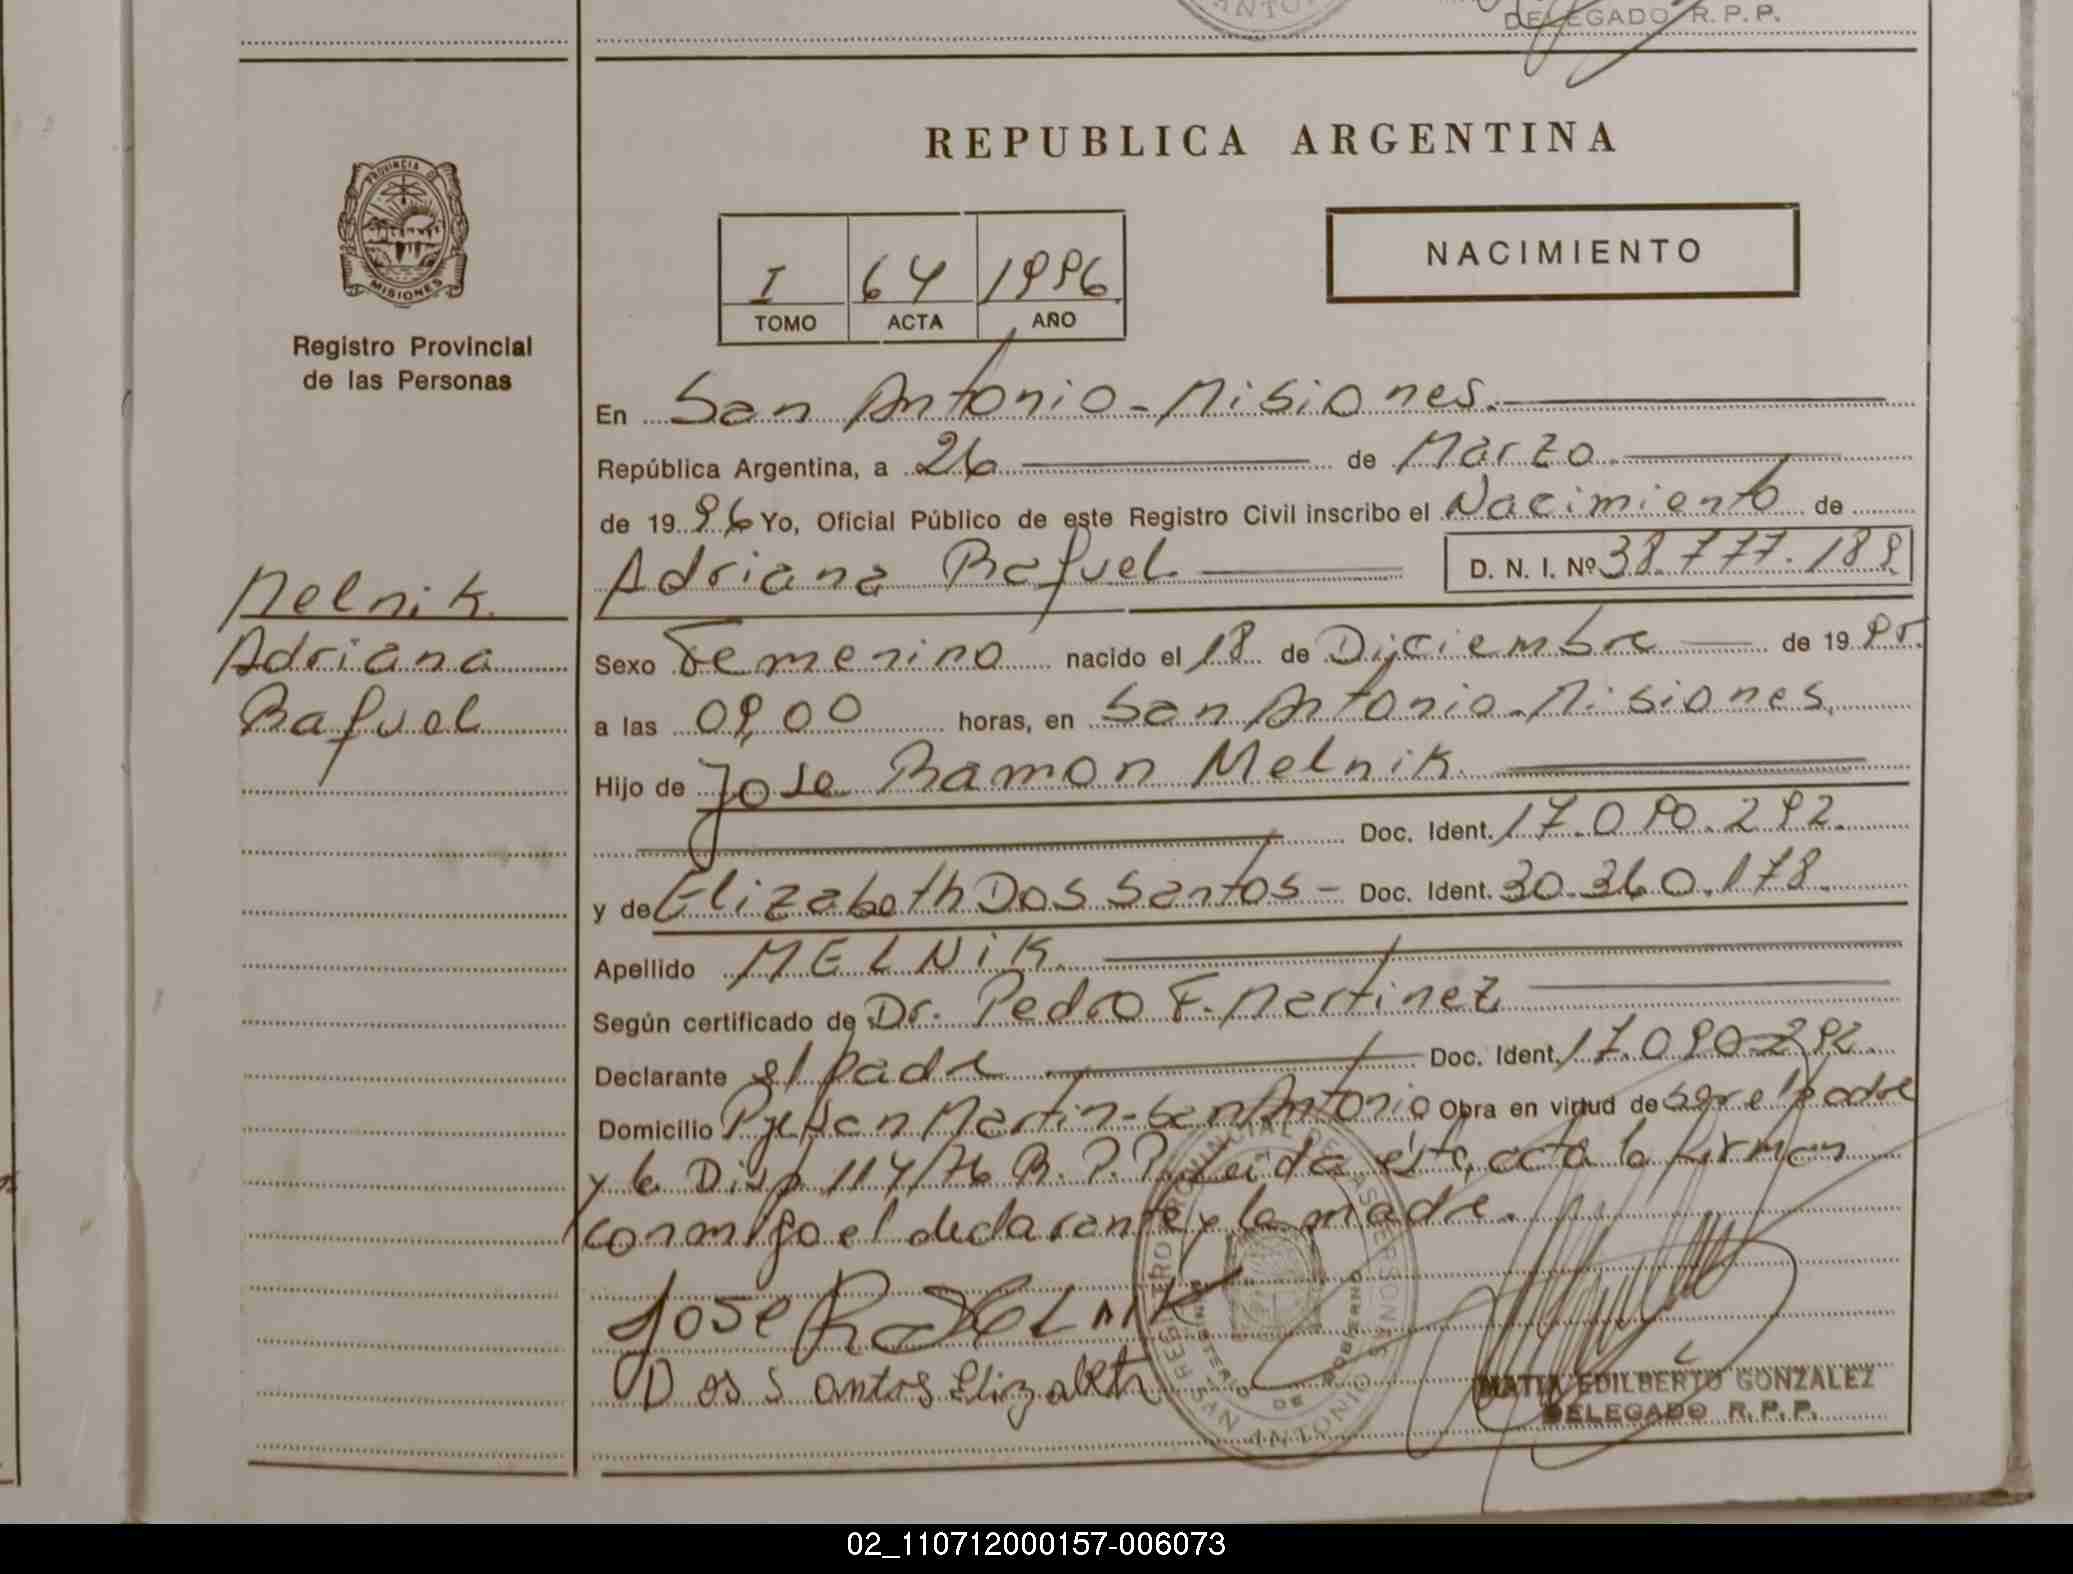 DELEGADO R.P.P.
REPUBLICA ARGENTINA
PROVINCIA DE
MISIONES
Registro Provincial
de las Personas
NACIMIENTO
I 64 1996
TOMO ACTA AÑO
En San Antonio - Misiones.
República Argentina, a 26 de Marzo
de 1996 Yo, Oficial Público de este Registro Civil inscribo el Nacimiento de
Adriana Rafuel D. N. I. Nº 38.777.189
Melnik
Adriana
Rafuel
Sexo Femenino nacido el 18 de Diciembre de 1995.
a las 09,00 horas, en San Antonio - Misiones.
Hijo de Jose Ramon Melnik
Doc. Ident. 17.090.292.
y de Elizabeth Dos Santos - Doc. Ident. 30.360.178.
Apellido MELNIK.
Según certificado de Dr. Pedro F. Martinez
Declarante el padre Doc. Ident. 17.090.292.
Domicilio Pje San Martin - San Antonio Obra en virtud de ser el padre
y la Disp. 114/76 R.P.P. Leida esta, acta la firman
conmigo el declarante y la madre.
Jose R. Melnik
Dos Santos Elizabeth
REGISTRO PROVINCIAL DE LAS PERSONAS
MINISTERIO DE GOBIERNO
SAN ANTONIO
EDILBERTO GONZALEZ
DELEGADO R.P.P.
02_110712000157-006073